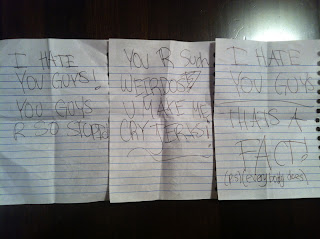 I HATE
YOU GUYS!
YOU GUYS
R SO STUPID
YOU R SUCH
WEIRDOS!
U MAKE ME
CRY TERES!
I HATE
YOU GUYS
THATS A
FACT!
(P.S)(everybody does)